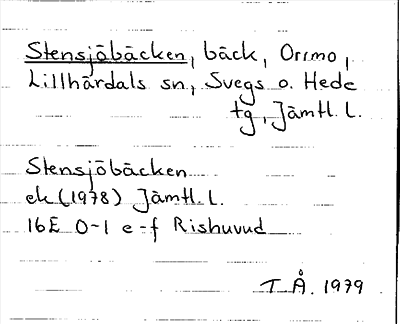 Stensjöbäcken, bäck, Orrmo,
Lillhärdals sn., Svegs o. Hede
tg, Jämtl. L.
Stensjöbäcken
ek (1978) Jämtl. L.
16E 0-1 e-f Rishuvud
T Å. 1979